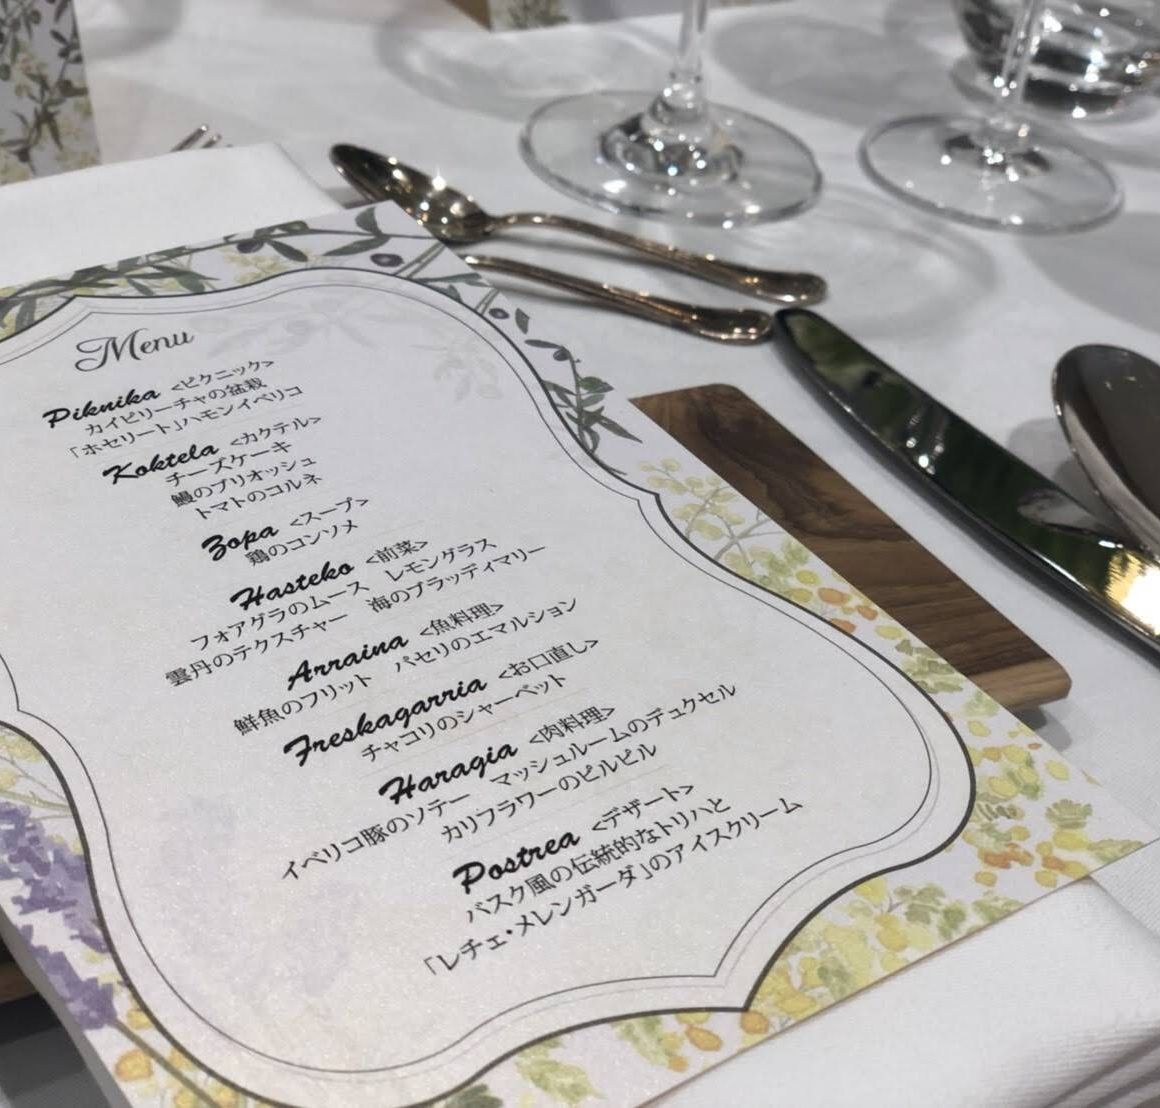 Menu
Piknika <ピクニック>
カイピリーチャの盆栽
「ホセリート」ハモンイベリコ
Koktela <カクテル>
チーズケーキ
鰻のブリオッシュ
トマトのコルネ
Zopa <スープ>
鶏のコンソメ
Hasteko <前菜>
フォアグラのムース レモングラス
雲丹のテクスチャー 海のブラッディマリー
Arraina <魚料理>
鮮魚のフリット パセリのエマルション
Freskagarria <お口直し>
チャコリのシャーベット
Haragia <肉料理>
イベリコ豚のソテー マッシュルームのデュクセル
カリフラワーのピルピル
Postrea <デザート>
バスク風の伝統的なトリハと
「レチェ・メレンガーダ」のアイスクリーム